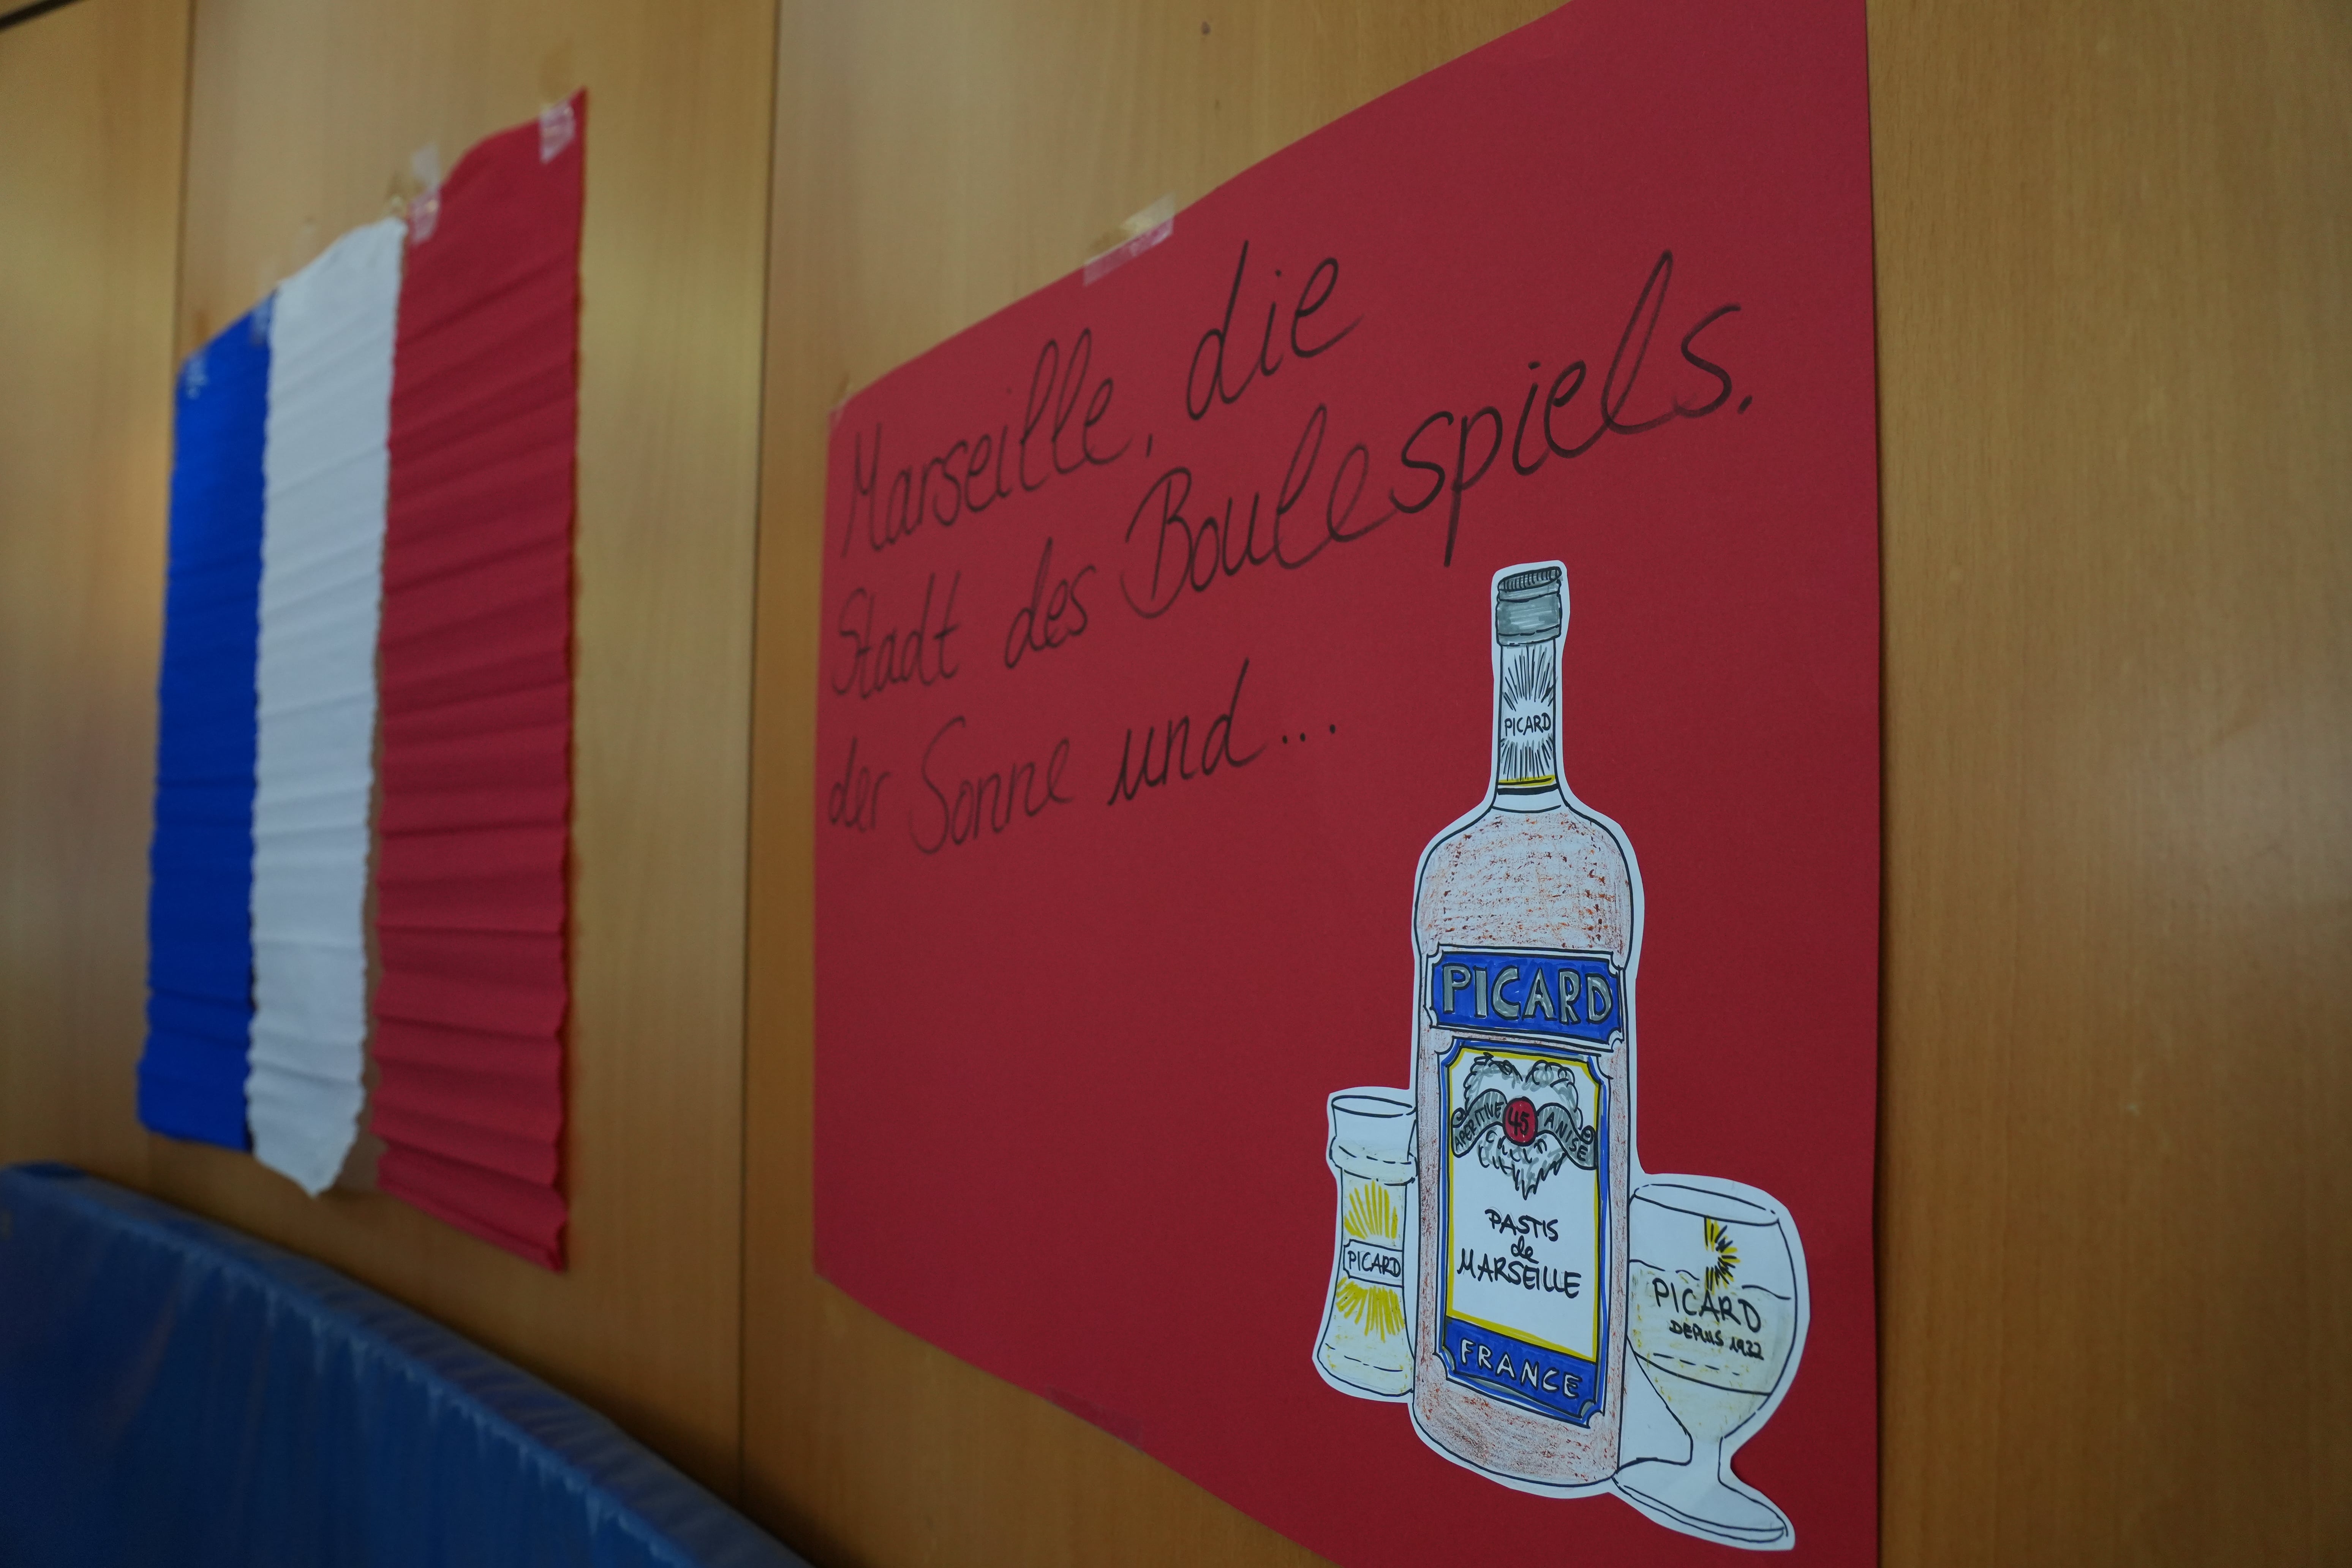 Marseille, die
Stadt des Boulespiels.
der Sonne und...
PICARD
PICARD
APERITIVE 45 ANISE
PASTIS
de
MARSEILLE
FRANCE
PICARD
PICARD
DEPUIS 1932